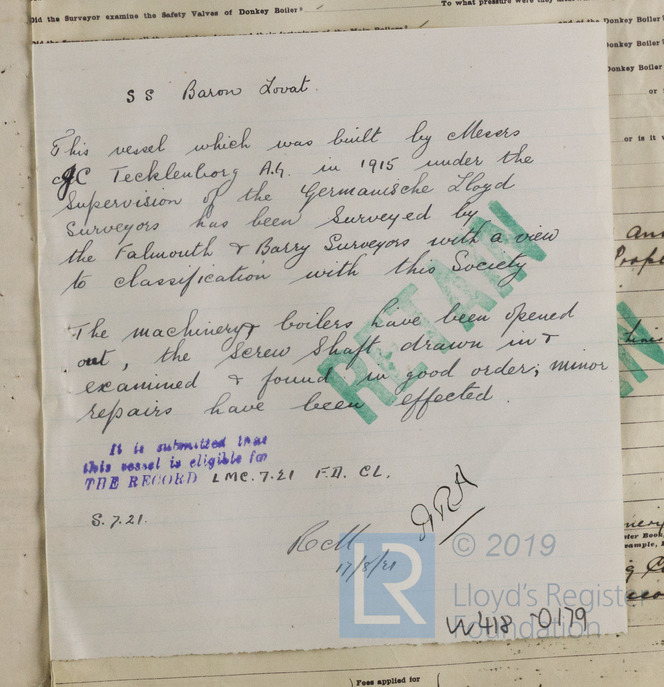 Did the Surveyor examine the Safety Valves of Donkey Boiler?
To what pressure were they
and of the Donkey Boiler
Donkey Boiler
Donkey Boiler
or
or is it
SS Baron Lovat.
This vessel which was built by Messrs
JC Tecklenborg A.G. in 1915 under the
Supervision of the Germanische Lloyd
Surveyors has been Surveyed by
the Falmouth & Barry Surveyors with a view
to classification with this Society
The machinery & boilers have been opened
out, the Screw Shaft drawn in &
examined & found in good order, minor
repairs have been effected.
RETAIN
It is submitted that
this vessel is eligible for
THE RECORD LMC.7.21 F.D. CL.
S.7.21.
RCM
17/8/21
© 2019
LR
Lloyd's Register
Foundation
W418-0179
Fees applied for